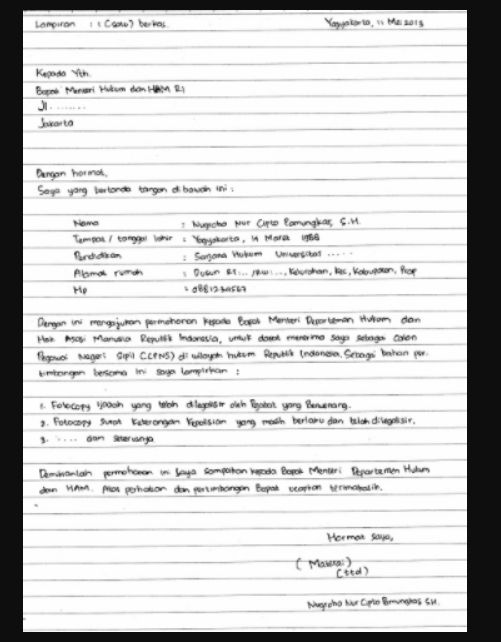 Lampiran : 1 (satu) berkas. Yogyakarta, 11 Mei 2013
Kepada Yth.
Bapak Menteri Hukum dan HAM RI
Jl. ........
Jakarta
Dengan hormat,
Saya yang bertanda tangan di bawah ini :
Nama : Nugroho Nur Cipto Pamungkas, S.H.
Tempat / tanggal lahir : Yogyakarta, 14 Maret 1988
Pendidikan : Sarjana Hukum Universitas .....
Alamat rumah : Dusun RT... /RW..., Kelurahan, Kec, Kabupaten, Prop
Hp :
Dengan ini mengajukan permohonan kepada Bapak Menteri Departemen Hukum dan
Hak Asasi Manusia Republik Indonesia, untuk dapat menerima saya sebagai Calon
Pegawai Negeri Sipil (CPNS) di wilayah hukum Republik Indonesia, Sebagai bahan per-
timbangan bersama ini saya lampirkan :
1. Fotocopy Ijazah yang telah dilegalisir oleh Pejabat yang Berwenang.
2. Fotocopy Surat Keterangan Kepolisian yang masih berlaku dan telah dilegalisir.
3. ..... dan seterusnya
Demikianlah permohonan ini saya sampaikan kepada Bapak Menteri Departemen Hukum
dan HAM. Atas perhatian dan pertimbangan Bapak ucapkan terimakasih.
Hormat saya,
( Materai )
(ttd)
Nugroho Nur Cipto Pamungkas S.H.